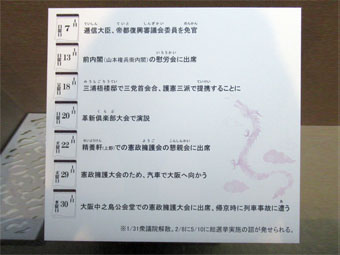 1月7日 月曜日 逓信大臣、帝都復興審議会委員を免官
1月13日 日曜日 前内閣(山本権兵衛内閣)の慰労会に出席
1月18日 金曜日 三浦梧楼邸で三党首会合、護憲三派で提携することに
1月20日 日曜日 革新倶楽部大会で演説
1月22日 火曜日 精養軒(上野)での憲政擁護会の懇親会に出席
1月29日 火曜日 憲政擁護大会のため、汽車で大阪へ向かう
1月30日 水曜日 大阪中之島公会堂での憲政擁護大会に出席、帰京時に列車事故に遭う
※1/31衆議院解散。2/8に5/10に総選挙実施の詔が発せられる。